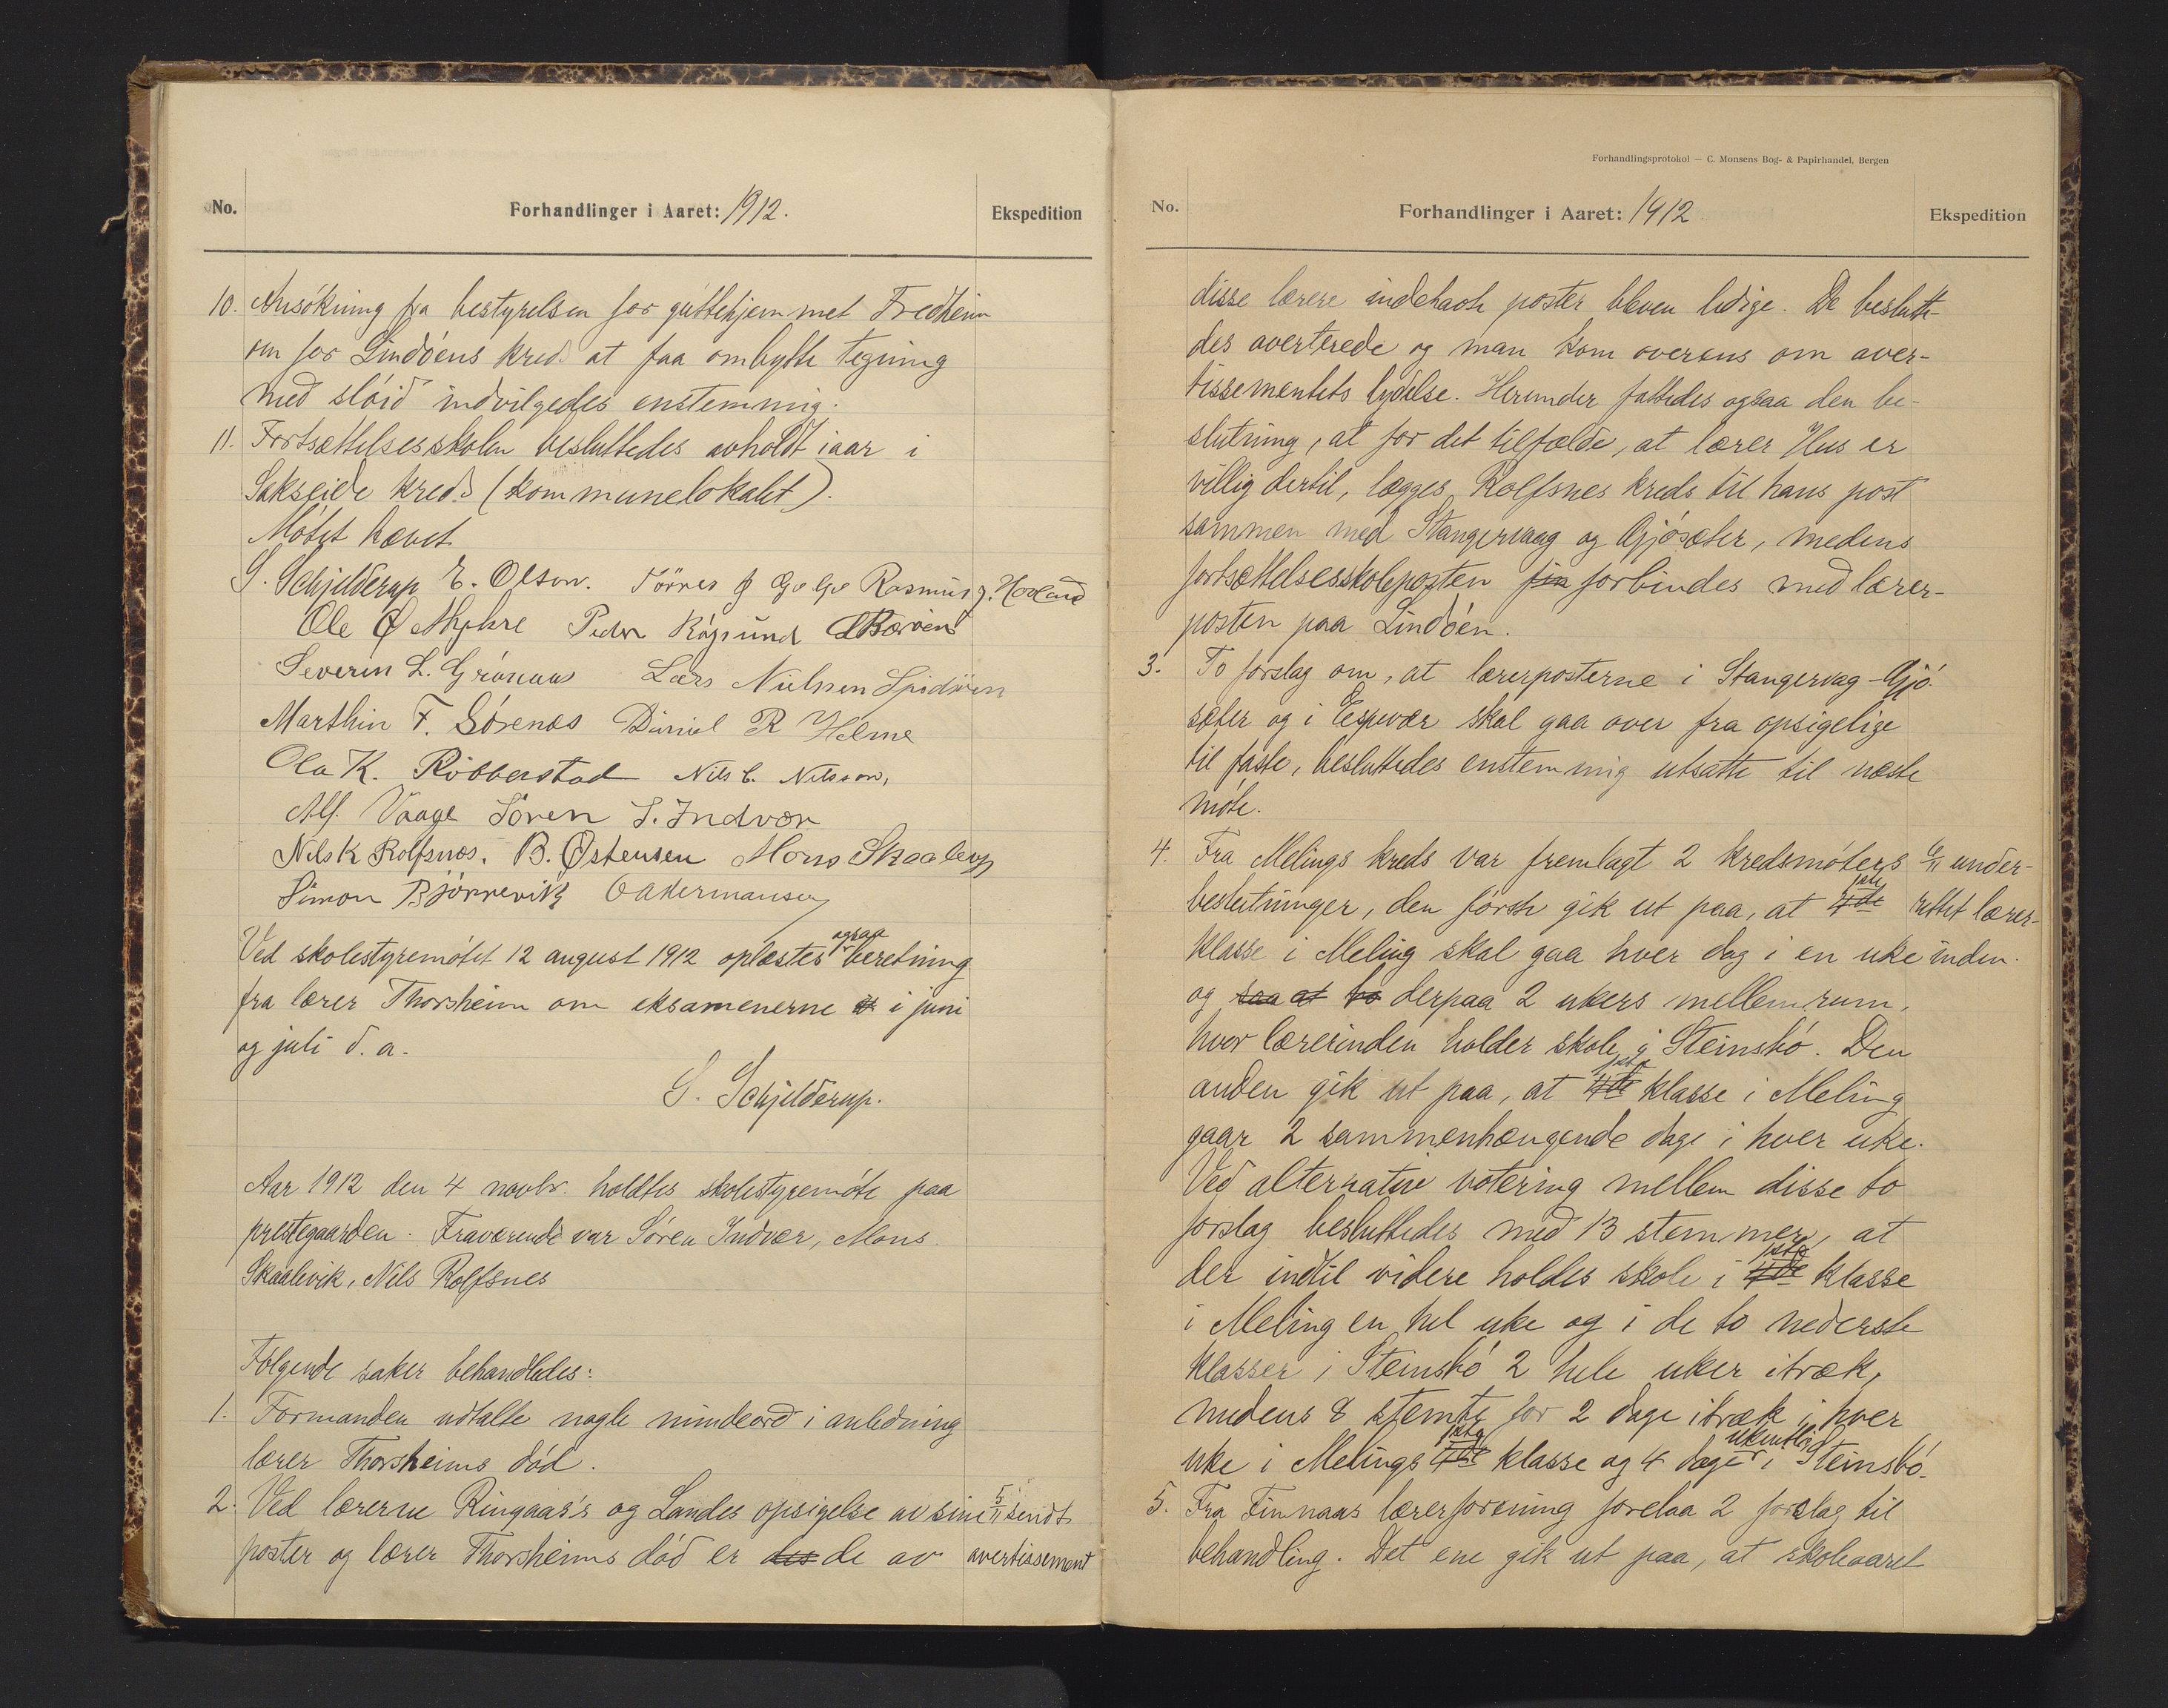 No.
Forhandlinger i Aaret: 1912.
Ekspedition
10. Ansökning fra bestyrelsen for guttehjemmet Fredheim
om for Lindöens kreds at faa ombytte tegning
med slöid indvilgedes enstemmig.
11. Fortsættelsesskolen besluttedes avholdt iaar i
Sakseide kreds (kommunelokalet).
Mötet hævet
S. Schjelderup E. Olson. Törres Rasmus J. Hovland
Ole Ø Mykre Peder Røgsund
Severin L. Grönnaas Lars Nielsen
Marthin F. Sørenæs Daniel R Helme
Ola K. Röbberstad Nils C. Nilsson,
Alf. Vaage Sören S. Indvær
Nils K Rolfsnes. B. Østensen Mons Skaalevig
Simon Bjørnevik O Adermansen
Ved skolestyremötet 12 august 1912 oplæstes ogsaa beretning
fra lærer Thorsheim om eksamenerne i juni
og juli d. a.
S. Schjelderup.
Aar 1912 den 4 novbr. holdtes skolestyremöte paa
prestegaarden. Fraværende var Sören Indvær, Mons
Skaalevik, Nils Rolfsnes
Følgende saker behandledes:
1. Formanden udtalte nogle mindeord i anledning
lærer Thorsheims död.
2. Ved lærerne Ringaas's og Landes opsigelse av sine 5/11 sendt
poster og lærer Thorsheims död er des de av avertissement
Forhandlingsprotokol — C. Monsens Bog- & Papirhandel, Bergen
No.
Forhandlinger i Aaret: 1912
Ekspedition
disse lærere indehavte poster bleven ledige. De beslutte-
des averterede og man kom overens om aver-
tissementets lydelse. Herunder fattedes ogsaa den be-
slutning, at for det tilfælde, at lærer Hus er
villig dertil, lægges Rolfsnes kreds til hans post
sammen med Stangervaag og Gjösæter, medens
fortsættelsesskoleposten fin forbindes med lærer-
posten paa Lindöen.
3. To forslag om, at lærerposterne i Stangervag-Gjö-
sæter og i Espevær skal gaa over fra opsigelige
til faste, besluttedes enstemmig utsatte til næste
möte.
4. Fra Melings kreds var fremlagt 2 kredsmöters 6/11 under-
beslutninger, den förste gik ut paa, at 4de 1ste rettet lærer-
klasse i Meling skal gaa hver dag i en uke inden.
og saa at to derpaa 2 ukers mellemrum,
hvor lærerinden holder skole i Steinsbö. Den
anden gik ut paa, at 4de 1ste klasse i Meling
gaar 2 sammenhængende dage i hver uke.
Ved alternativ votering mellem disse to
forslag besluttedes med 13 stemmer, at
der indtil videre holdes skole i 4de 1ste klasse
i Meling en hel uke og i de to nederste
klasser i Steinsbö 2 hele uker itræk,
medens 8 stemte for 2 dage itræk i hver
uke i Melings 4de 1ste klasse og 4 dage ukentlig i Steinsbö.
5. Fra Finnaas lærerforening forelaa 2 forslag til
behandling. Det ene gik ut paa, at skoleaaret